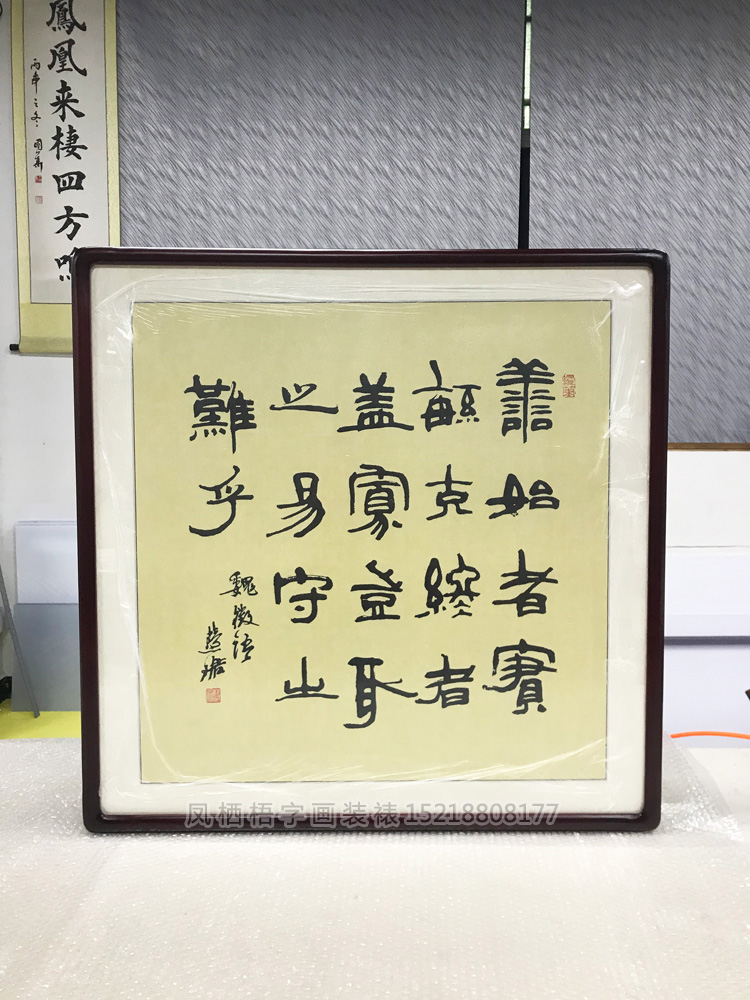 鳳凰来棲四方
善始者實
緐克終者
盖寡豈取
之易守之
難乎
魏徵語
凤栖梧字画装裱 15218808177